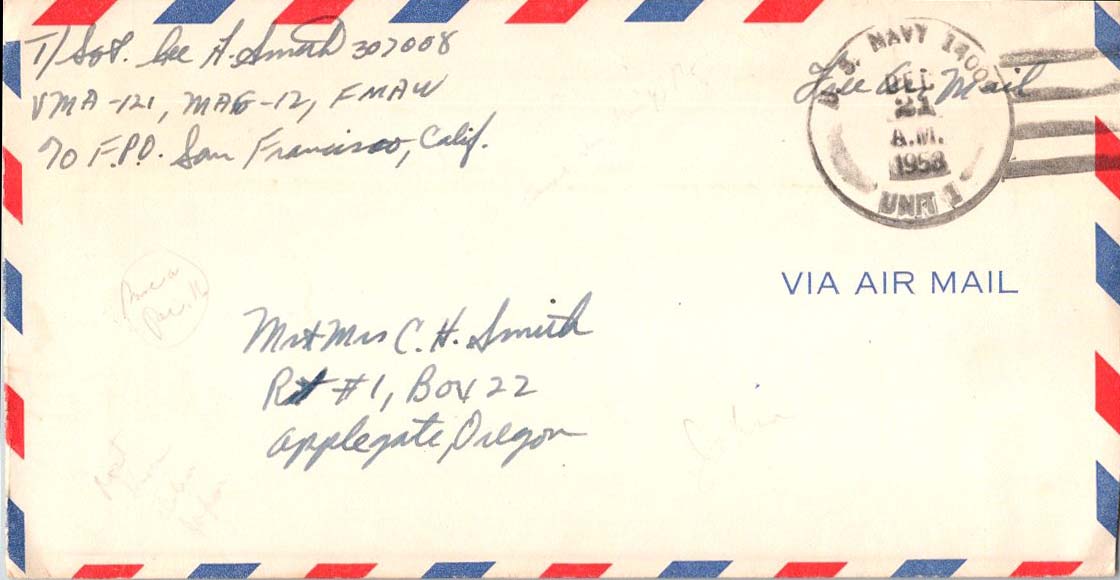 T/Sgt. Lee H. Smith 307008
VMA-121, MAG-12, FMAW
℅ F.P.O. San Francisco, Calif.
Free Air Mail
U.S. NAVY 1400
DEC
21
A.M.
1953
UNIT 1
VIA AIR MAIL
Mr + Mrs C. H. Smith
Rt #1, Box 22
Applegate, Oregon